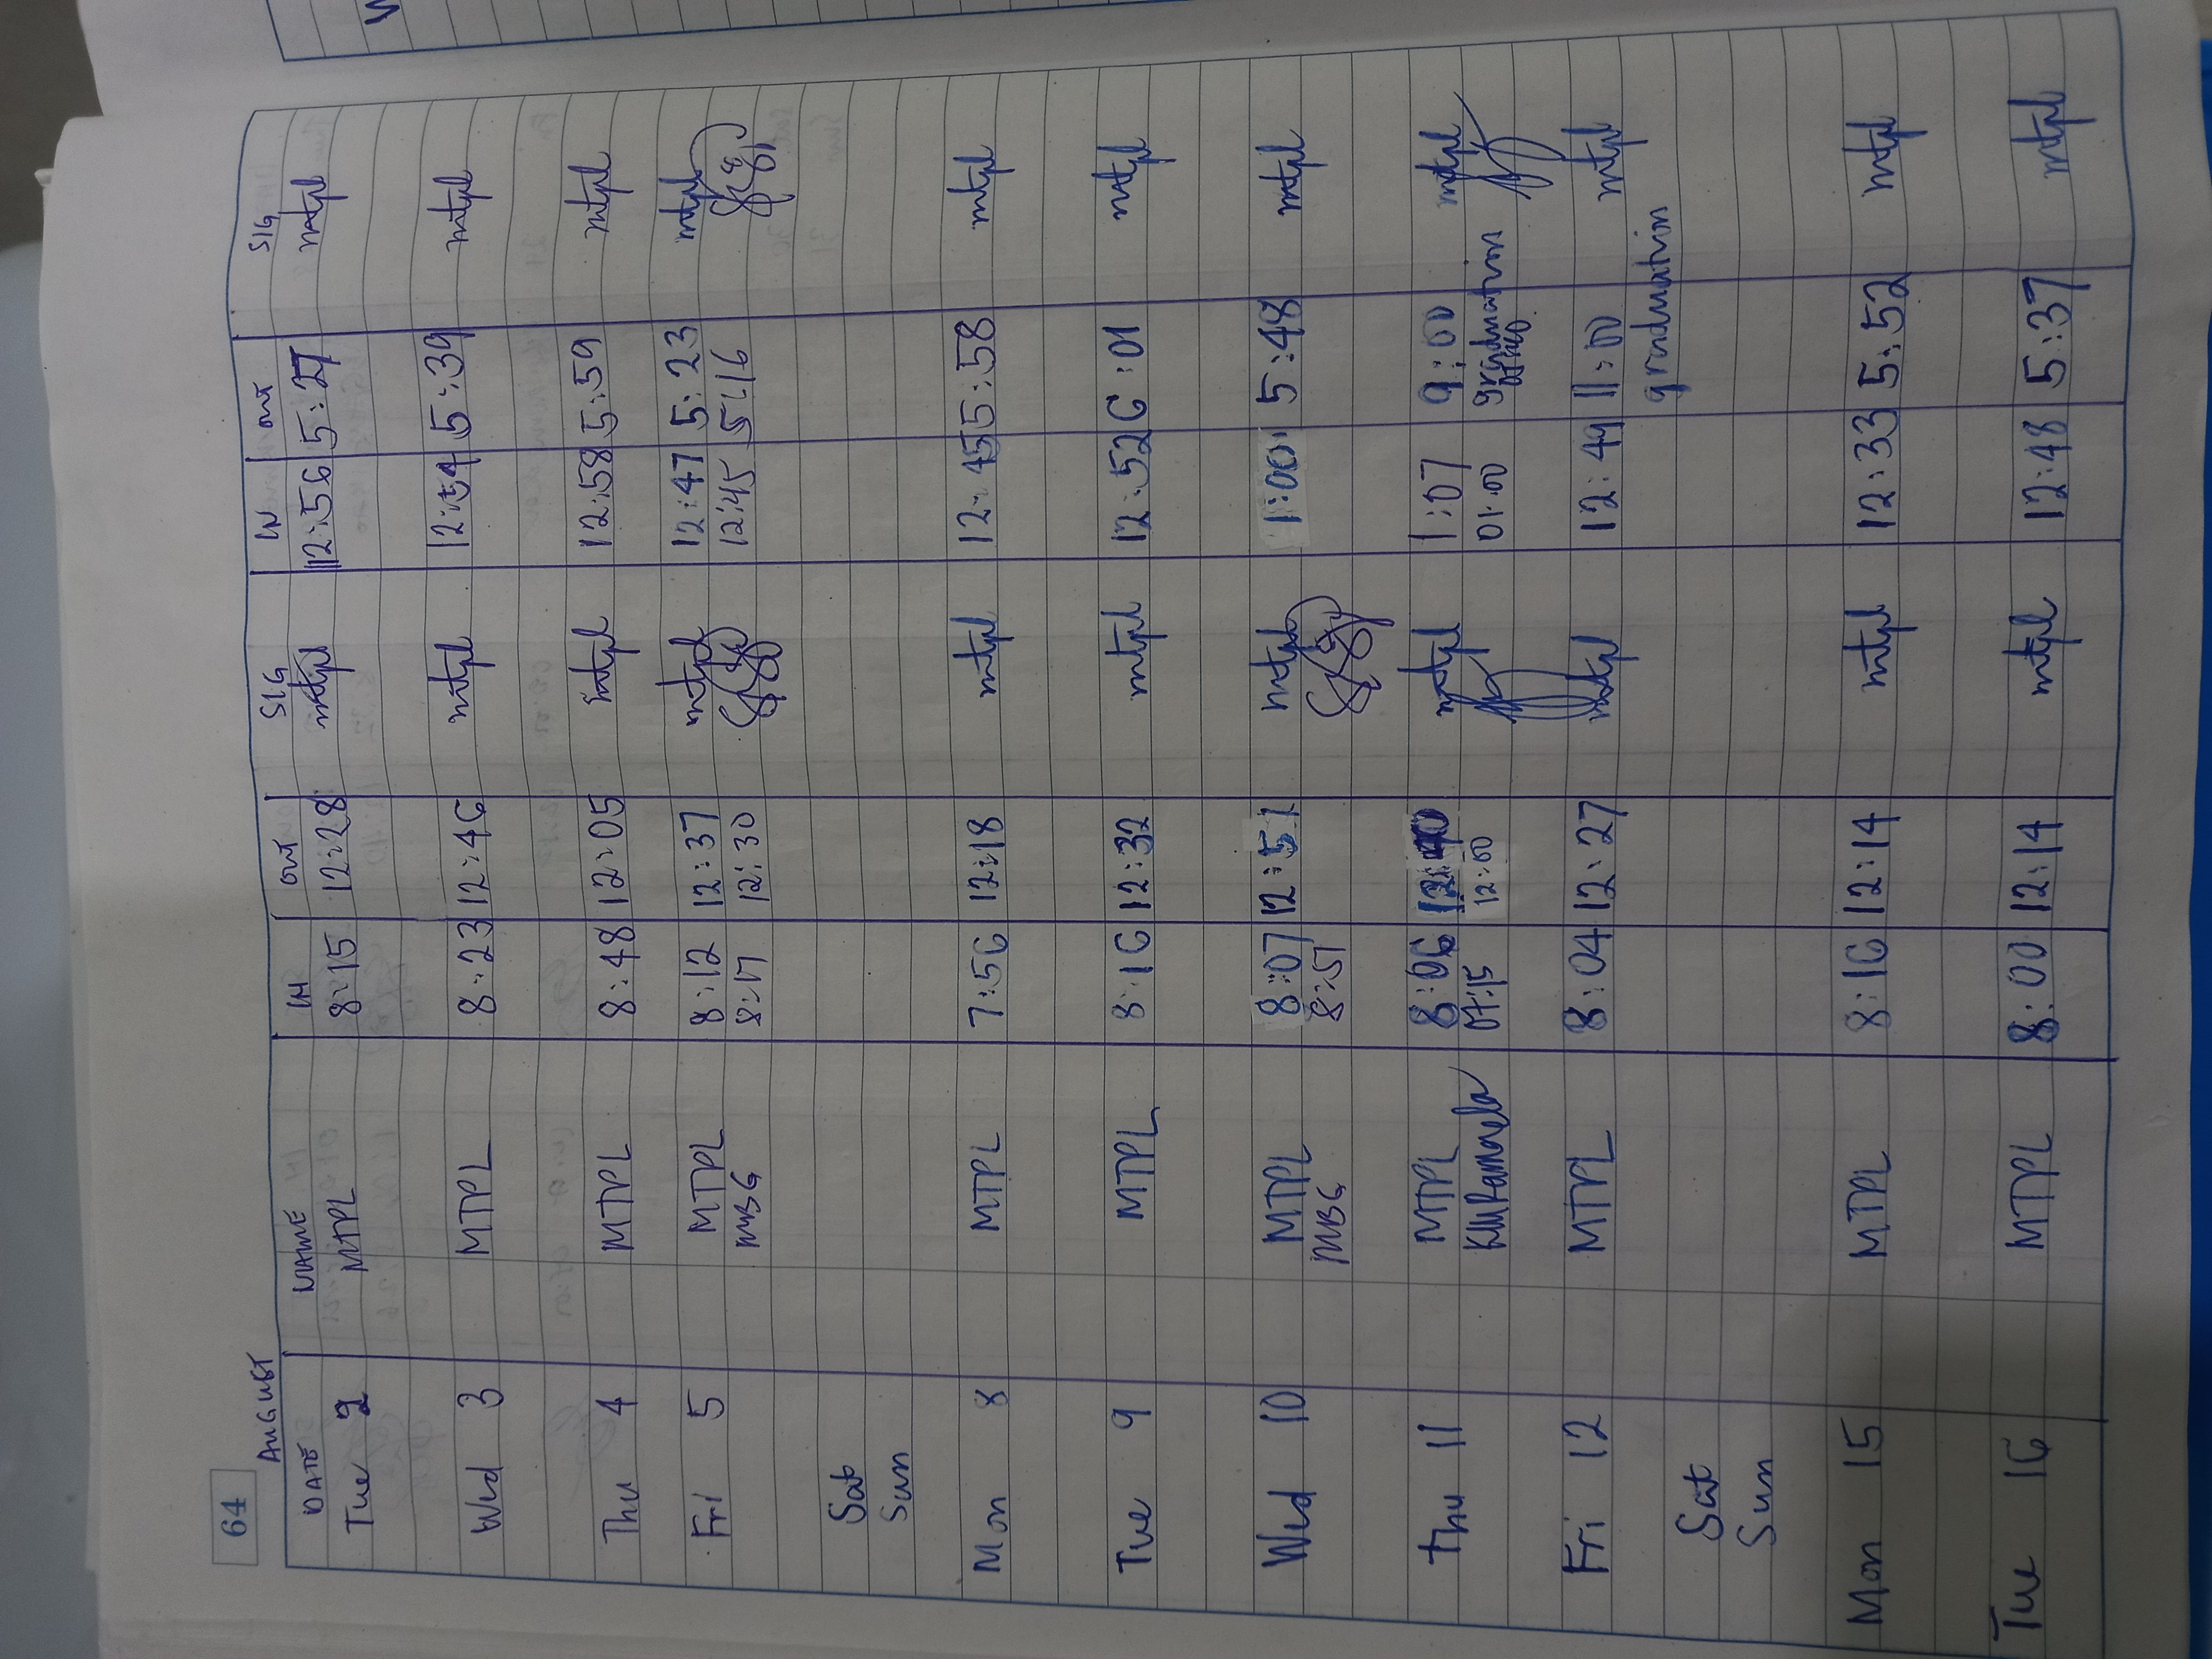 64
AUGUST
DATE NAME IN OUT SIG IN OUT SIG
Tue 2 MTPL 8:15 12:28 mtpl 12:56 5:27 mtpl
Wed 3 MTPL 8:23 12:46 mtpl 12:54 5:39 mtpl
Thu 4 MTPL 8:48 12:05 mtpl 12:58 5:59 mtpl
Fri 5 MTPL 8:12 12:37 mtpl 12:47 5:23 mtpl
MBG 8:17 12:30 12:45 5:16
Sat
Sun
Mon 8 MTPL 7:56 12:18 mtpl 12:45 5:58 mtpl
Tue 9 MTPL 8:16 12:32 mtpl 12:52 6:01 mtpl
Wed 10 MTPL 8:07 12:51 mtpl 1:00 5:48 mtpl
MBG 8:51
Thu 11 MTPL 8:06 12:40 mtpl 1:07 9:00 mtpl
07:15 12:00 01:00 graduation
Fri 12 MTPL 8:04 12:27 mtpl 12:49 11:00 mtpl
graduation
Sat
Sun
Mon 15 MTPL 8:16 12:14 mtpl 12:33 5:52 mtpl
Tue 16 MTPL 8:00 12:14 mtpl 12:48 5:37 mtpl